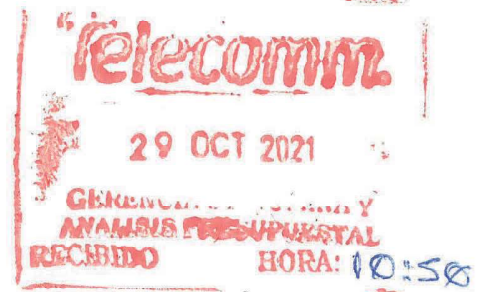 Telecomm.
29 OCT 2021
GERENCIA Y
ANALISIS PRESUPUESTAL
RECIBIDO HORA: 10:50